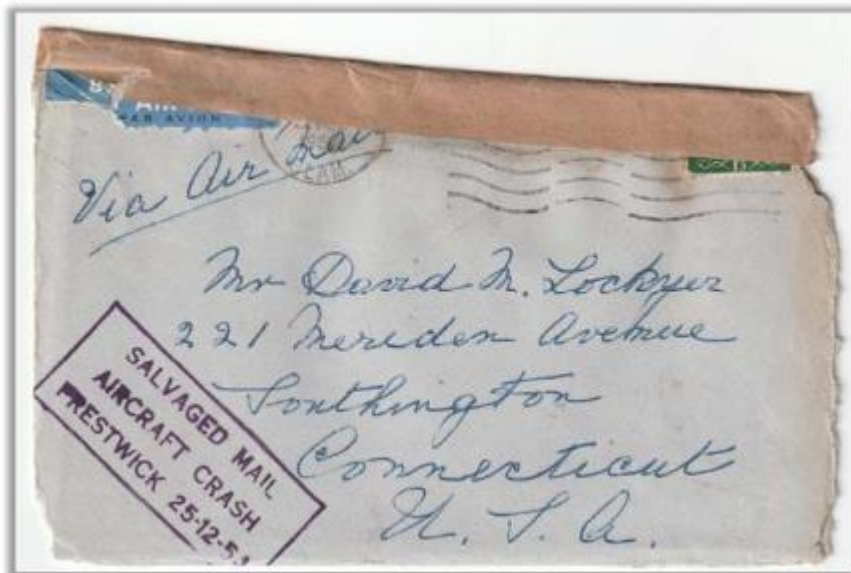 AIR
PAR AVION
Via Air Mail
Mr David M. Lockyer
221 Meriden Avenue
Southington
Connecticut
U. S. A.
SALVAGED MAIL
AIRCRAFT CRASH
PRESTWICK 25-12-5